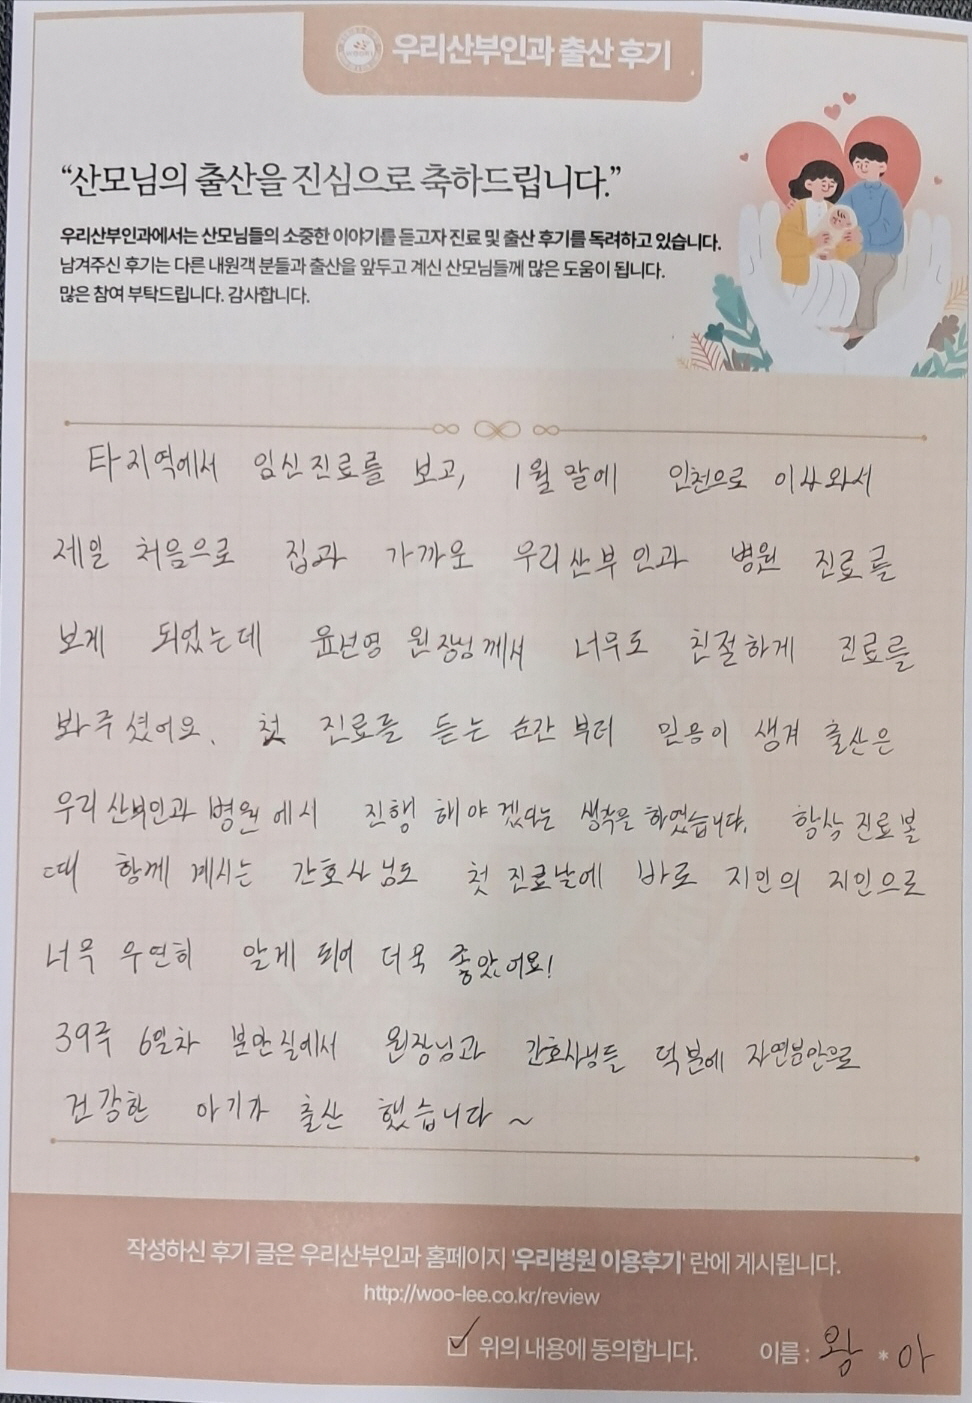 우리산부인과 출산 후기
“산모님의 출산을 진심으로 축하드립니다.”
우리산부인과에서는 산모님들의 소중한 이야기를 듣고자 진료 및 출산 후기를 독려하고 있습니다.
남겨주신 후기는 다른 내원객 분들과 출산을 앞두고 계신 산모님들께 많은 도움이 됩니다.
많은 참여 부탁드립니다. 감사합니다.
타지역에서 임신진료를 보고, 1월 말에 인천으로 이사와서
제일 처음으로 집과 가까운 우리산부인과 병원 진료를
보게 되었는데 윤선영 원장님께서 너무도 친절하게 진료를
봐주셨어요. 첫 진료를 듣는 순간부터 믿음이 생겨 출산은
우리산부인과 병원에서 진행해야겠다는 생각을 하였습니다. 항상 진료볼
때 함께 계시는 간호사님도 첫 진료날에 바로 지인의 지인으로
너무 우연히 알게 되어 더욱 좋았어요!
39주 6일차 분만실에서 원장님과 간호사님들 덕분에 자연분만으로
건강한 아기가 출산 했습니다~
작성하신 후기 글은 우리산부인과 홈페이지 '우리병원 이용후기' 란에 게시됩니다.
http://woo-lee.co.kr/review
위의 내용에 동의합니다. 이름 : 왕 * 아